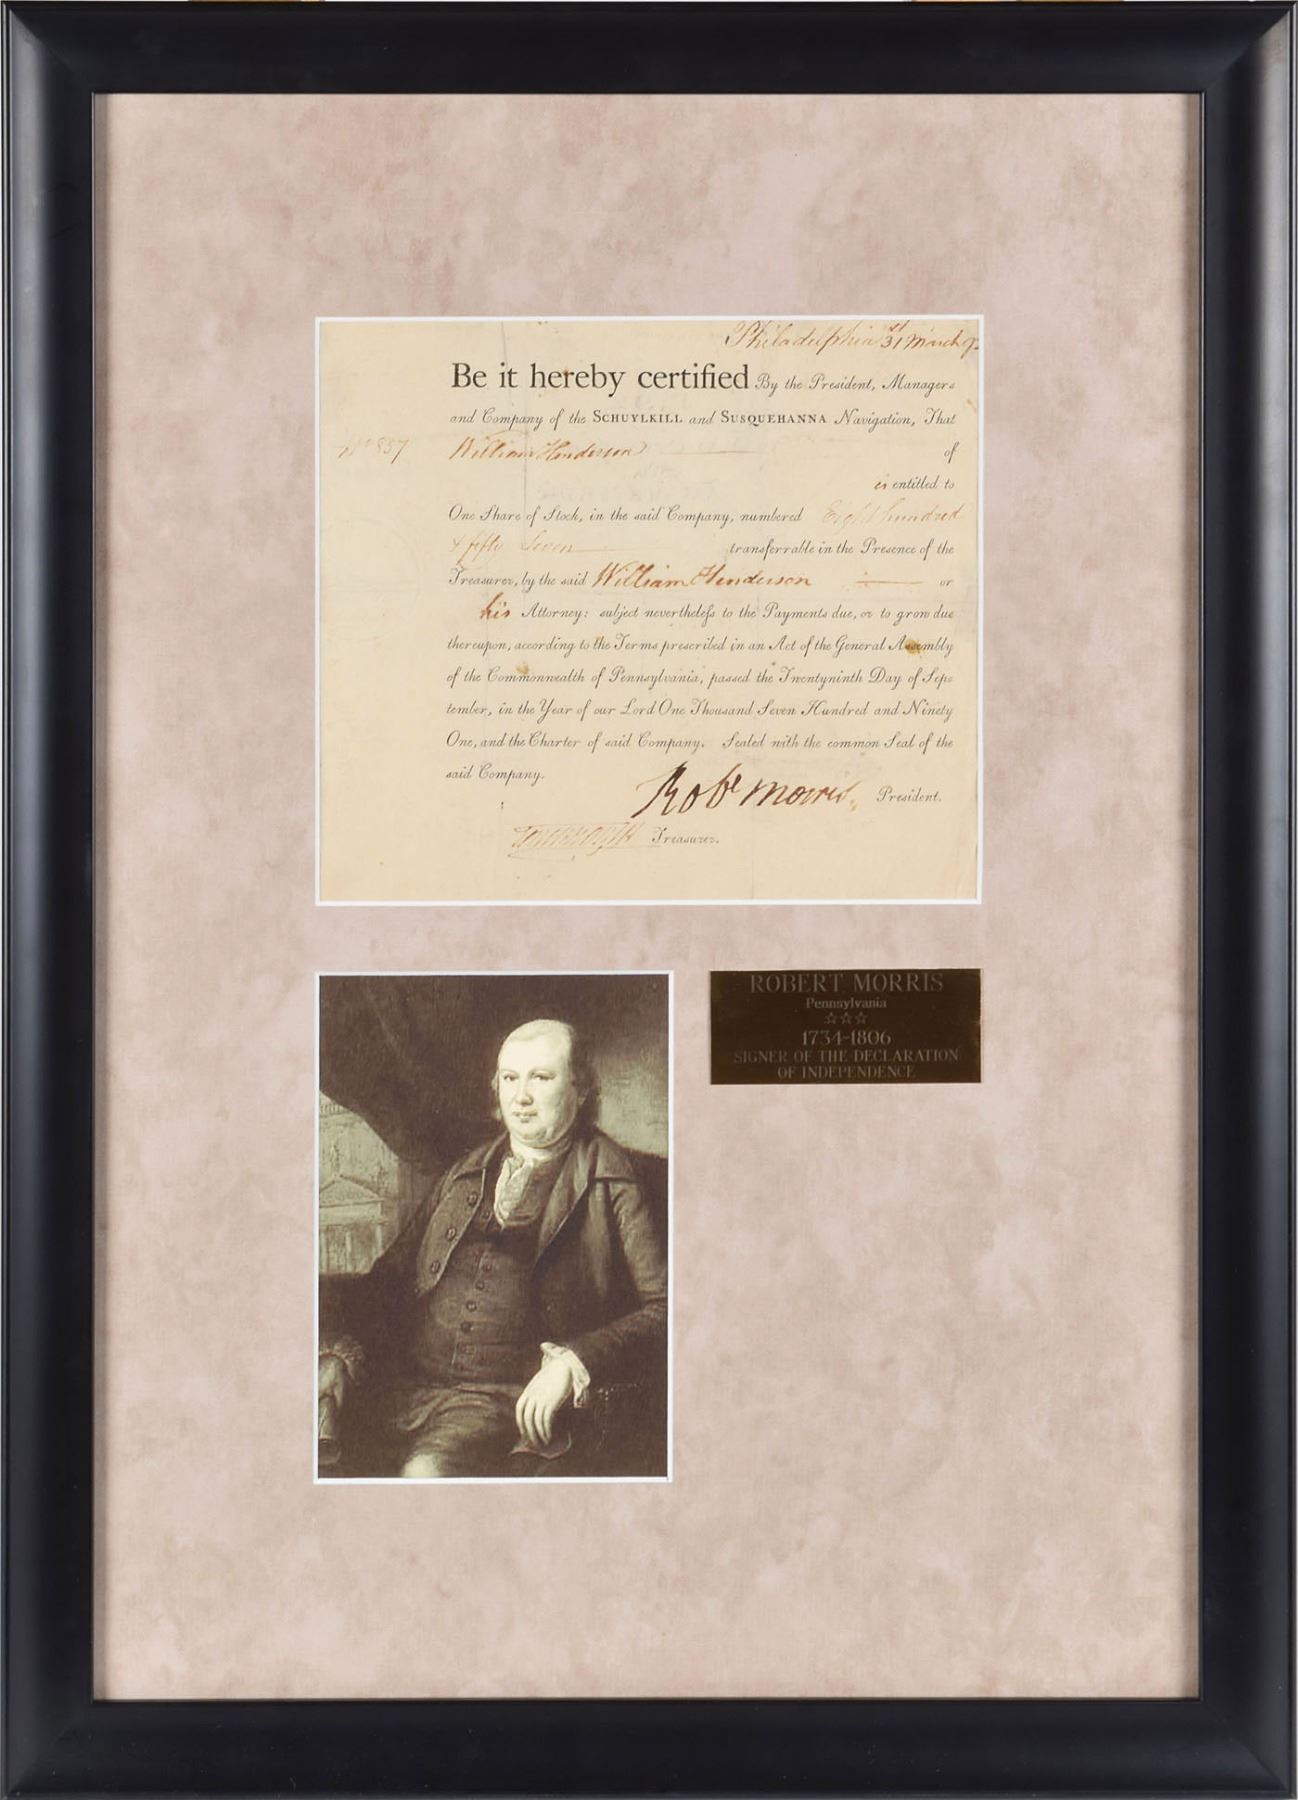 Philadelphia 31st March
Be it hereby certified By the President, Managers
and Company of the SCHUYLKILL and SUSQUEHANNA Navigation, That
No 857 William Henderson of
is entitled to
One Share of Stock, in the said Company, numbered Eight hundred
& fifty Seven transferrable in the Presence of the
Treasurer, by the said William Henderson or
his Attorney: subject nevertheleſs to the Payments due, or to grow due
thereupon, according to the Terms prescribed in an Act of the General Assembly
of the Commonwealth of Pennsylvania, passed the Twentyninth Day of Sep-
tember, in the Year of our Lord One Thousand Seven Hundred and Ninety
One, and the Charter of said Company. Sealed with the common Seal of the
said Company.
Robt Morris President.
Treasurer.
ROBERT MORRIS
Pennsylvania
☆☆☆
1734-1806
SIGNER OF THE DECLARATION
OF INDEPENDENCE